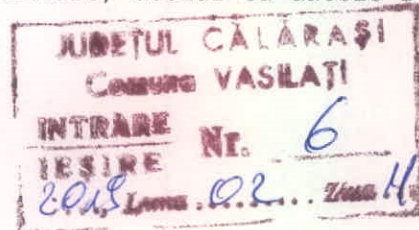 JUDEȚUL CĂLĂRAȘI
Comuna VASILAȚI
INTRARE
IEȘIRE Nr. 6
2019 Luna 02 Ziua